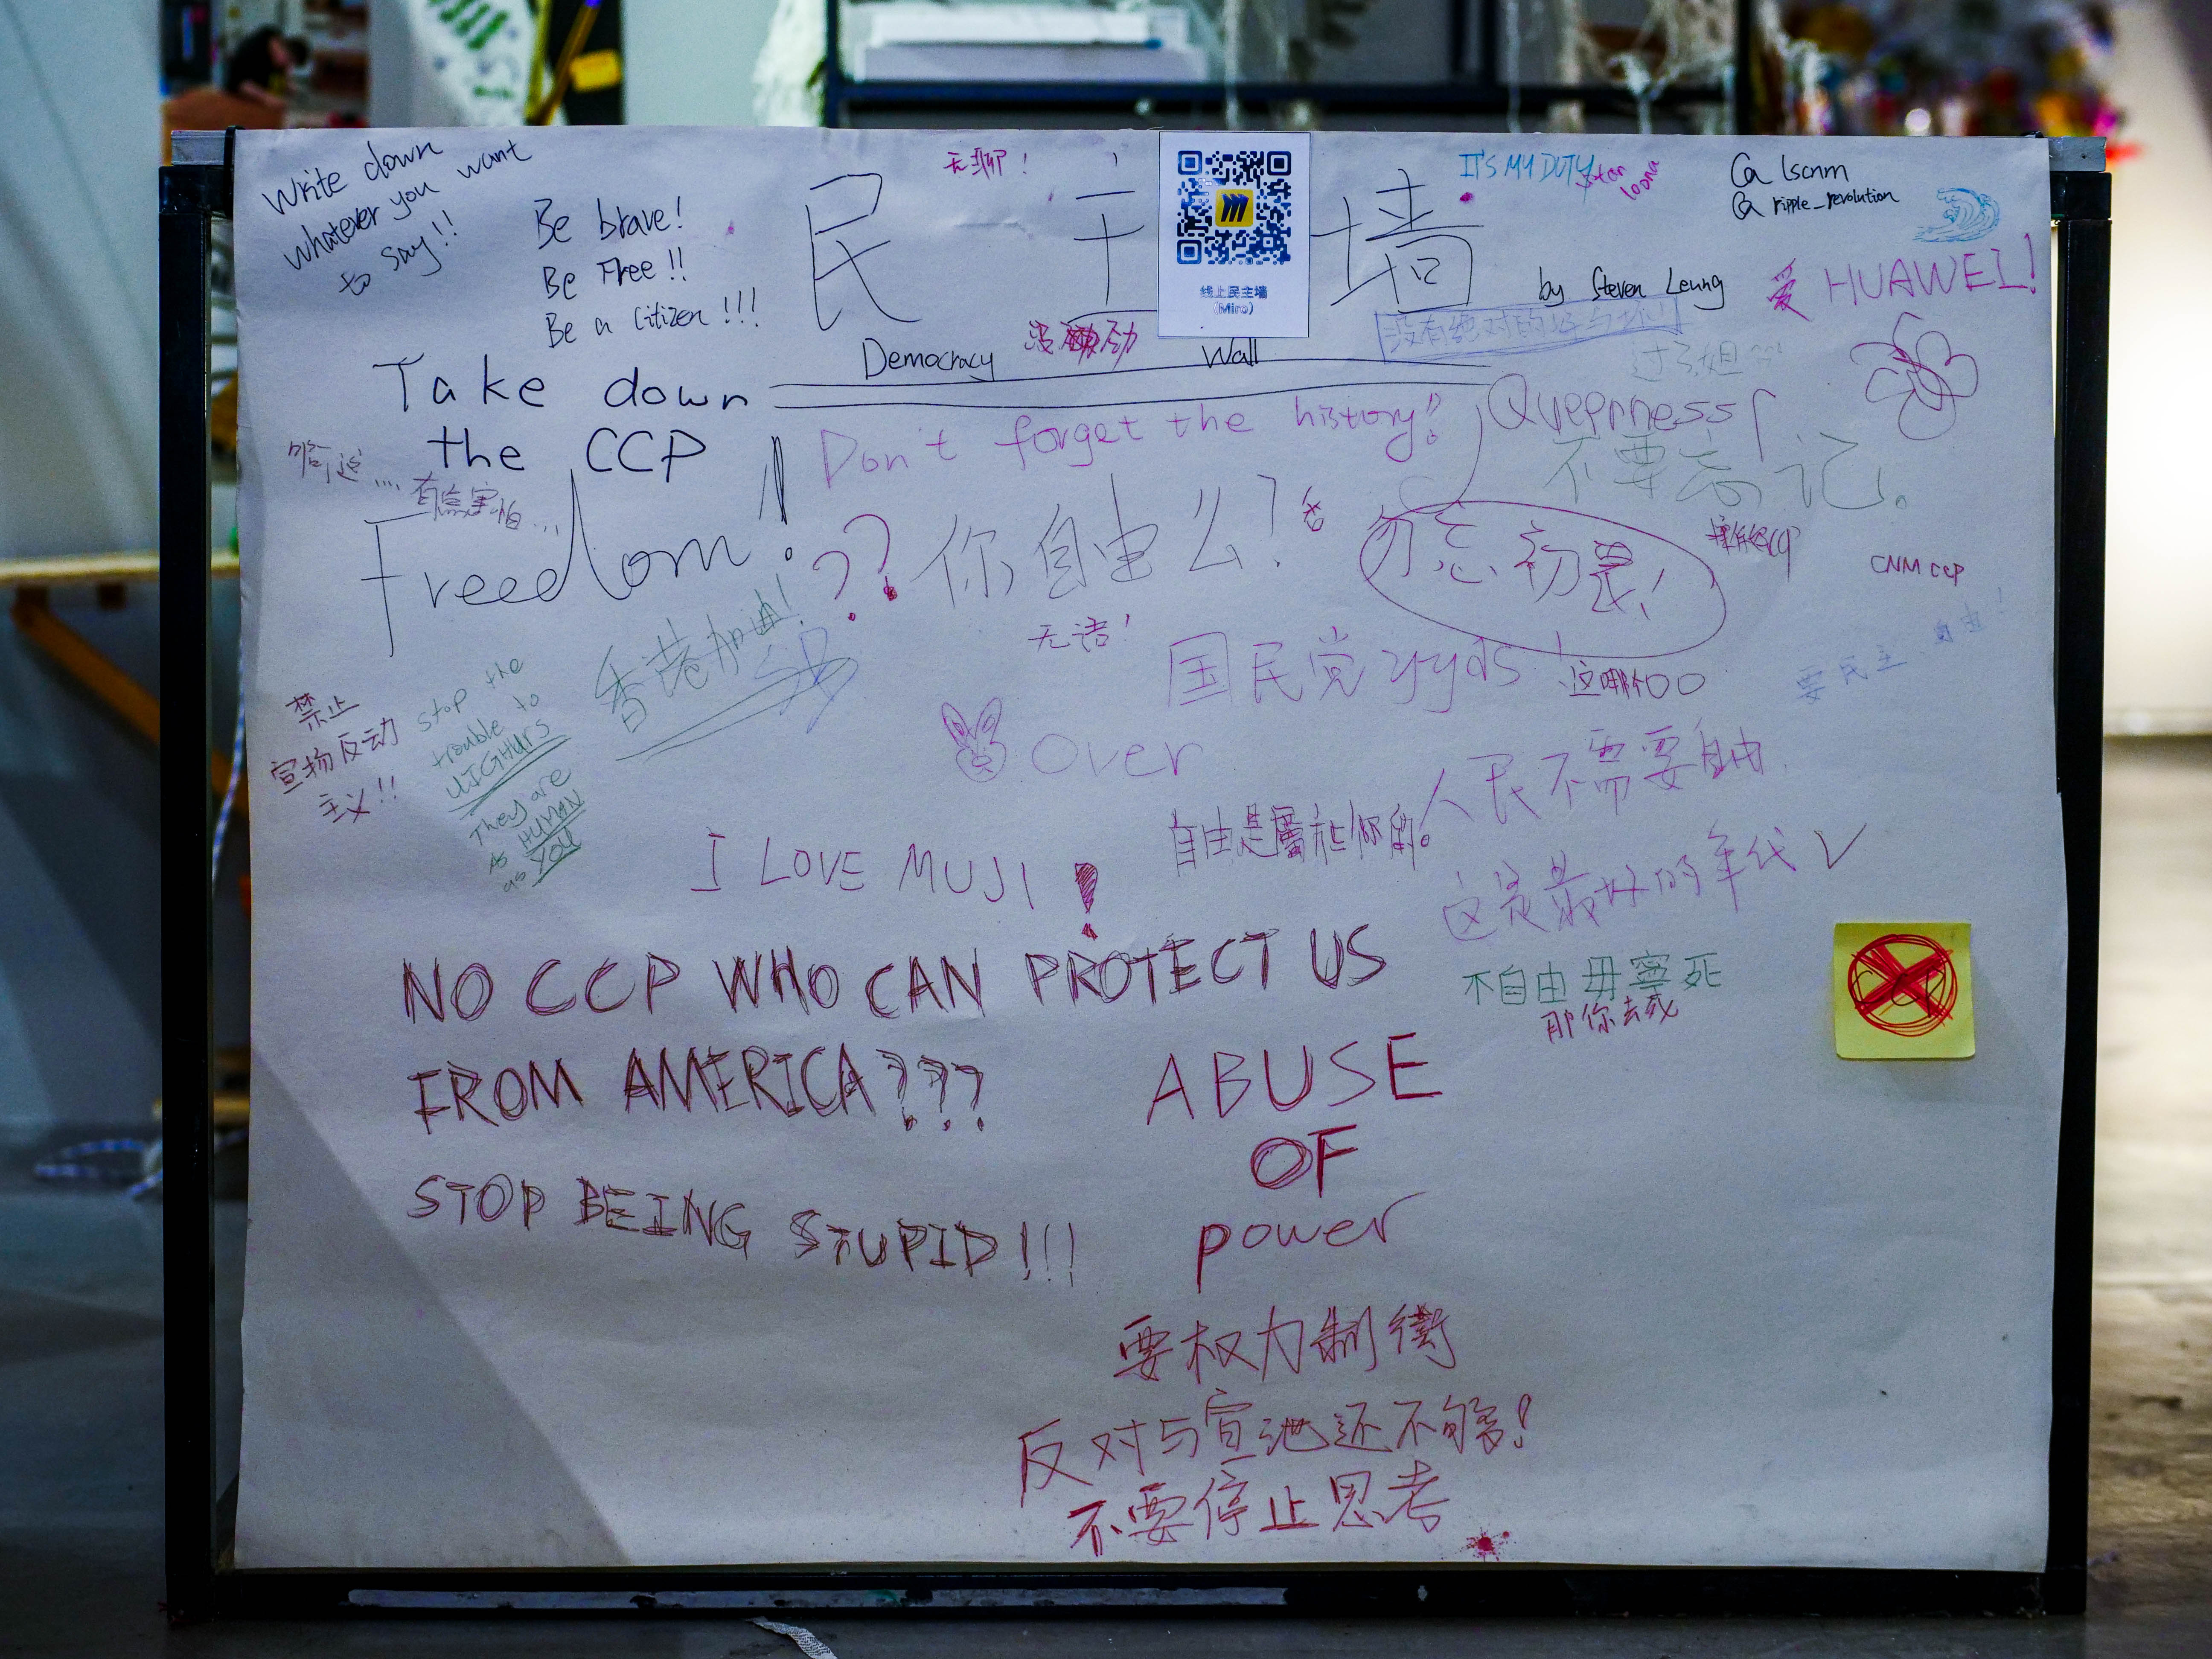 Write down
whatever you want
to say!!
Be brave!
Be Free!!
Be a Citizen!!!
无聊!
民主墙
线上民主墙
(Miro)
IT'S MY DUTY
stan
loona
@ lscnm
@ ripple_revolution
by Steven Leung
爱 HUAWEI!
Democracy Wall
没有绝对的好与坏!
Take down
the CCP!
Don't forget the history!!
Queerness
不要忘记。
有点害怕...
Freedom!
??你自由么?
否
勿忘初衷!
CNM CCP
无语!
香港加油!
SB
国民党yyds!
要民主、自由!
禁止
宣扬反动
主义!!
stop the
trouble to
UIGHURS
They are
AS HUMAN
as YOU
Over
人民不需要自由.
自由是屬於你的。
I LOVE MUJI!
这是最好的年代 ✓
NO CCP WHO CAN PROTECT US
FROM AMERICA???
STOP BEING STUPID!!!
不自由毋寧死
那你去死
ABUSE
OF
power
要权力制衡
反对与宣泄还不够!
不要停止思考